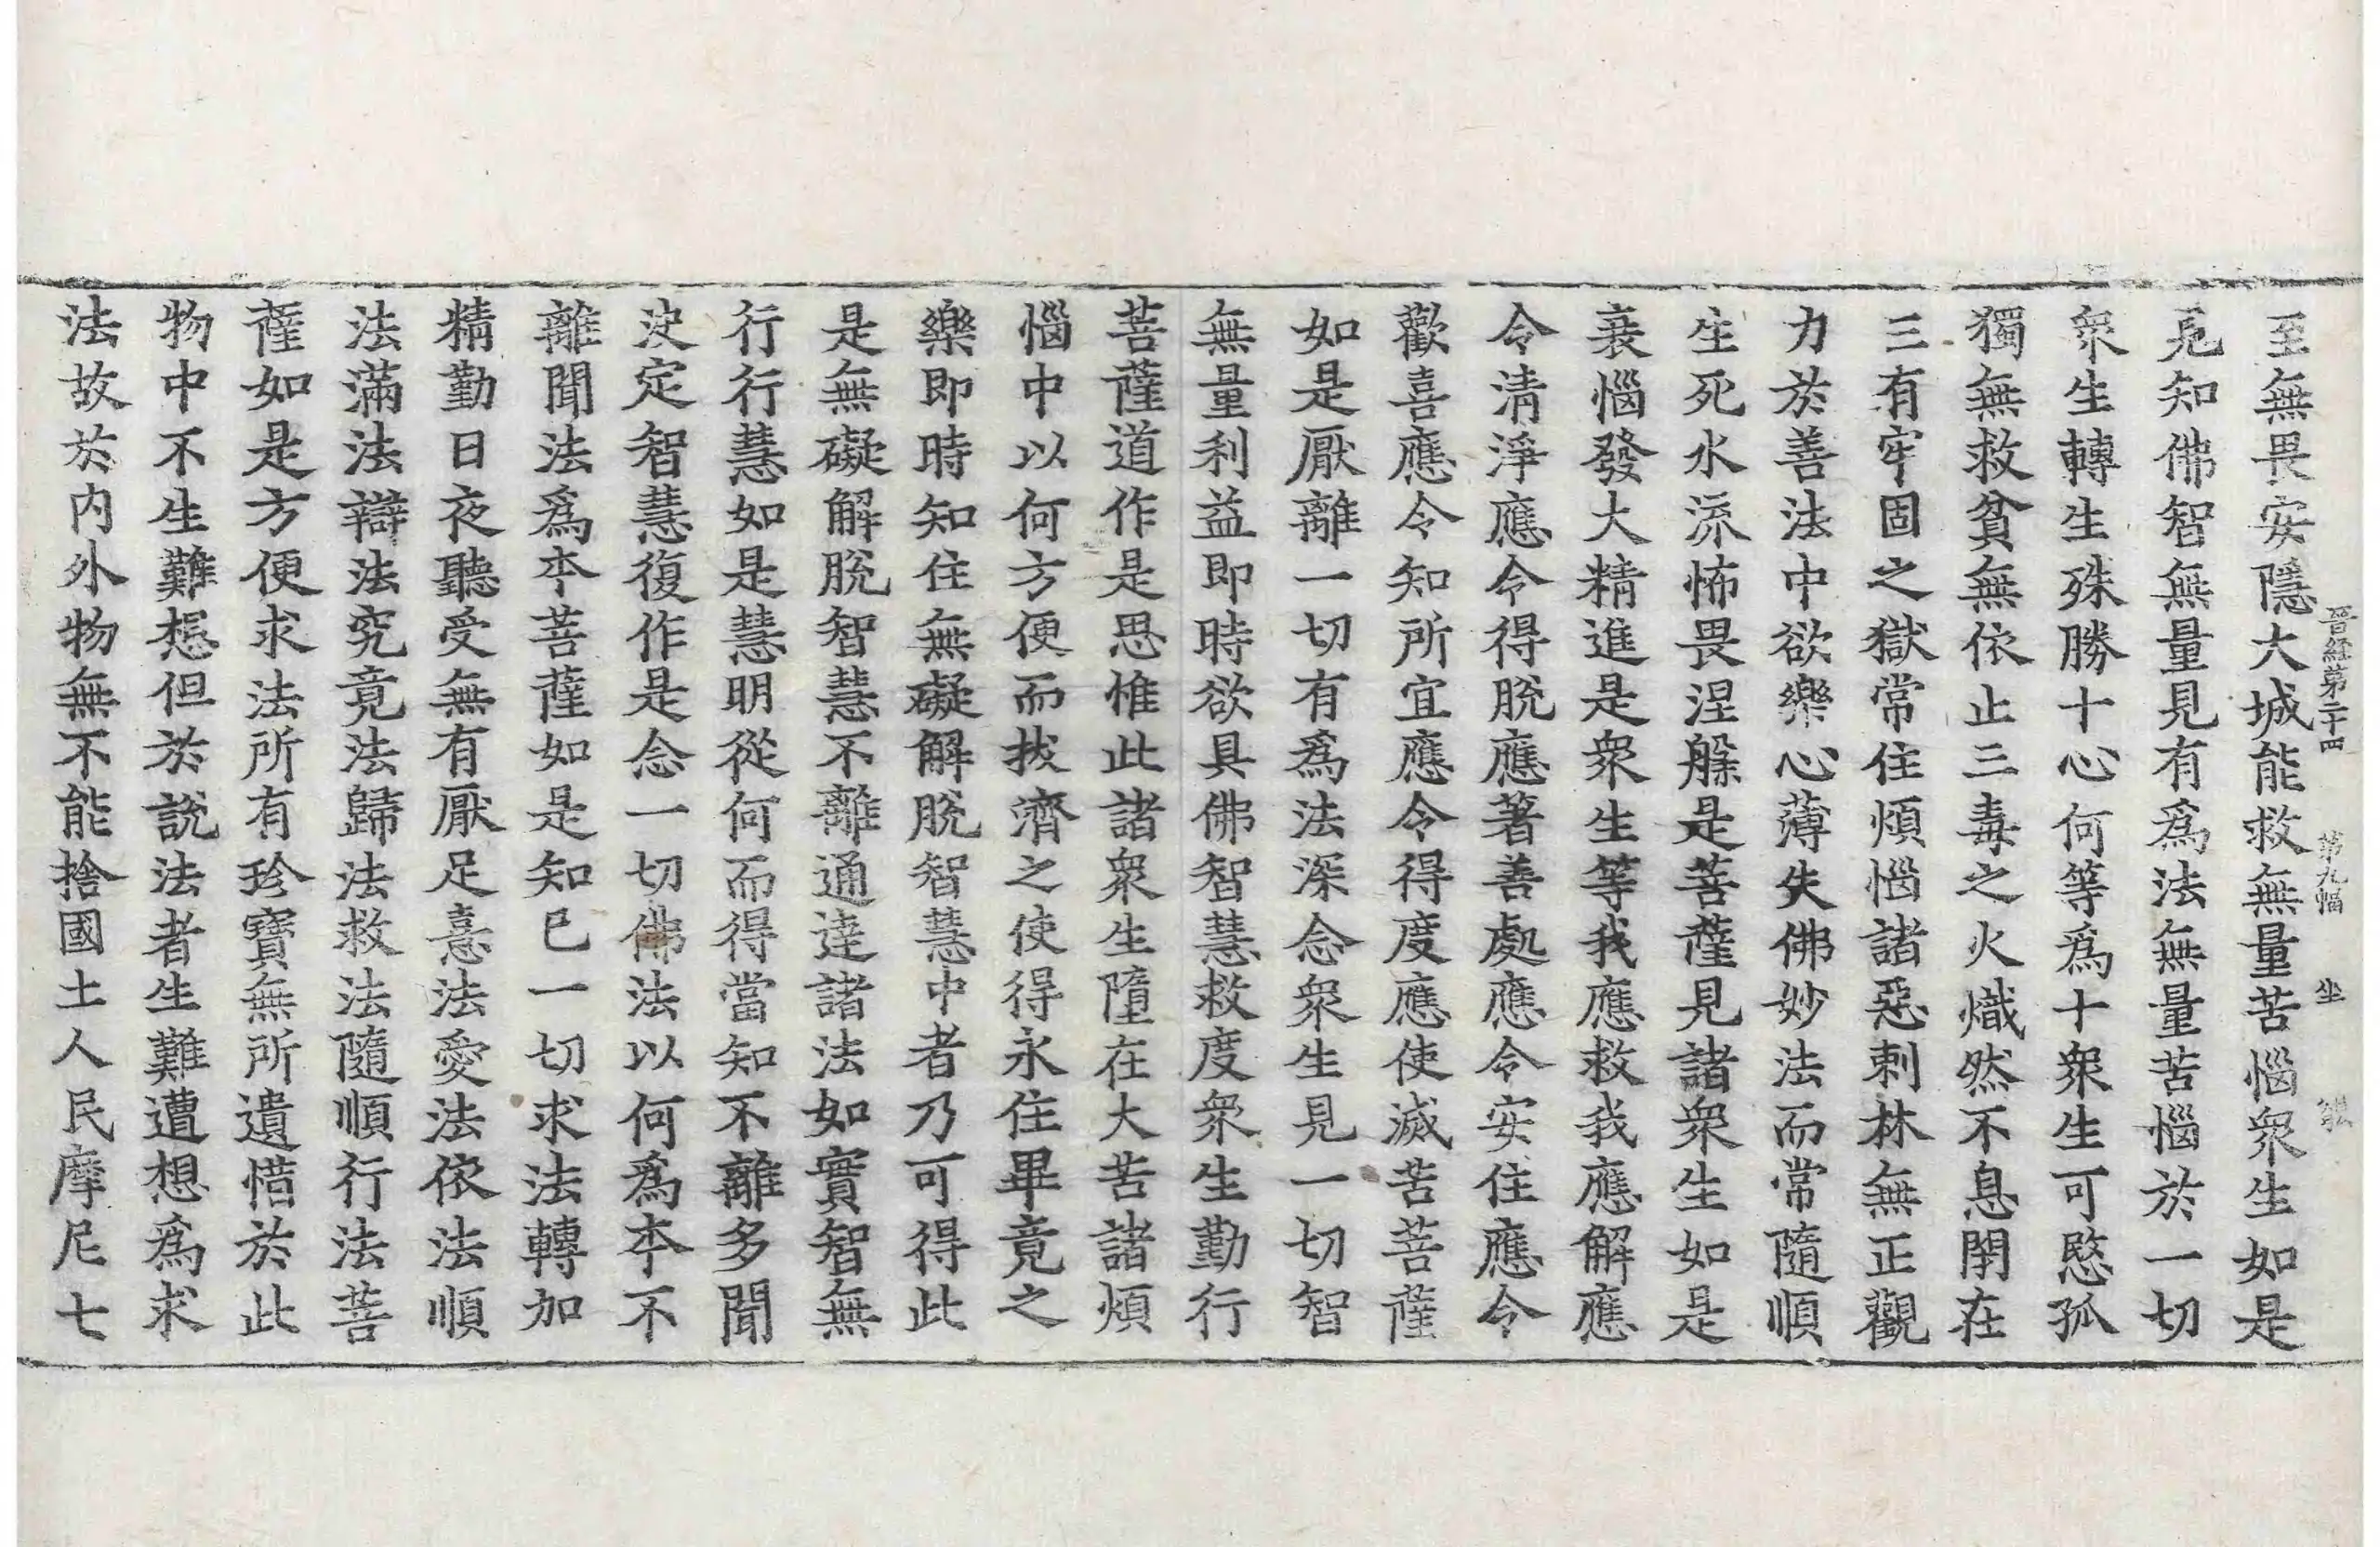 晉經第二十四 第九幅 坐
至無畏安隱大城能救無量苦惱衆生如是
見知佛智無量見有爲法無量苦惱於一切
衆生轉生殊勝十心何等爲十衆生可愍孤
獨無救貧無依止三毒之火熾然不息閉在
三有牢固之獄常住煩惱諸惡刺林無正觀
力於善法中欲樂心薄失佛妙法而常隨順
生死水流怖畏涅槃是菩薩見諸衆生如是
衰惱發大精進是衆生等我應救我應解應
令清淨應令得脫應著善處應令安住應令
歡喜應令知所宜應令得度應使滅苦菩薩
如是厭離一切有爲法深念衆生見一切智
無量利益即時欲具佛智慧救度衆生勤行
菩薩道作是思惟此諸衆生墮在大苦諸煩
惱中以何方便而拔濟之使得永住畢竟之
樂即時知住無礙解脫智慧中者乃可得此
是無礙解脫智慧不離通達諸法如實智無
行行慧如是慧明從何而得當知不離多聞
決定智慧復作是念一切佛法以何爲本不
離聞法爲本菩薩如是知已一切求法轉加
精勤日夜聽受無有厭足憙法愛法依法順
法滿法辯法究竟法歸法救法隨順行法菩
薩如是方便求法所有珍寶無所遺惜於此
物中不生難想但於說法者生難遭想爲求
法故於内外物無不能捨國土人民摩尼七